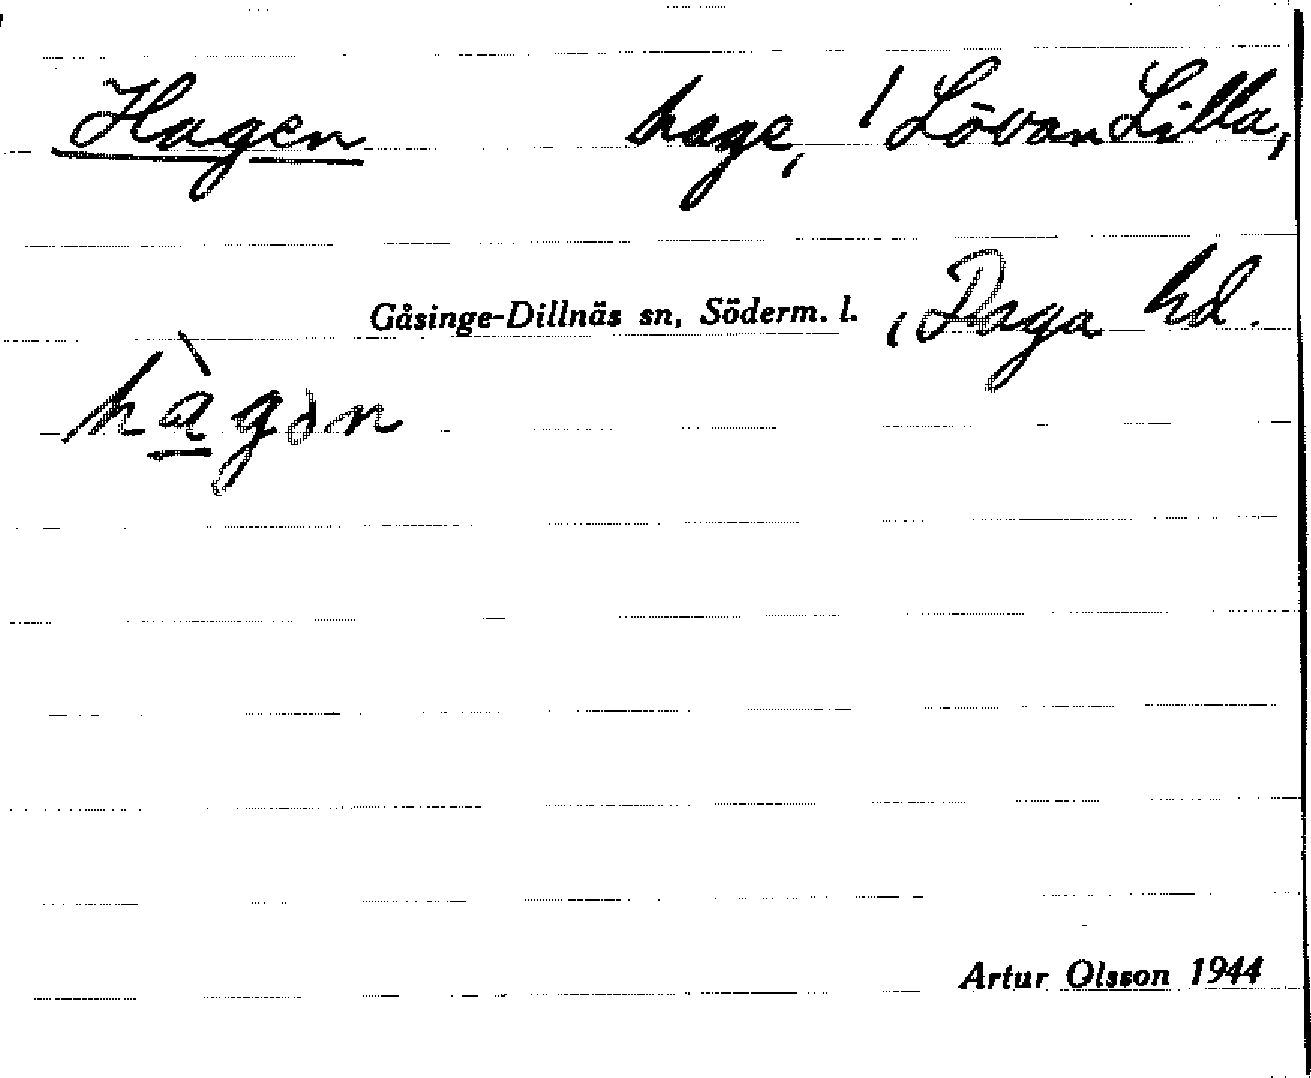 Hagen hage, / Lövan Lilla,
Gåsinge-Dillnäs sn, Söderm. l. , Daga hd.
hàgən
Artur Olsson 1944